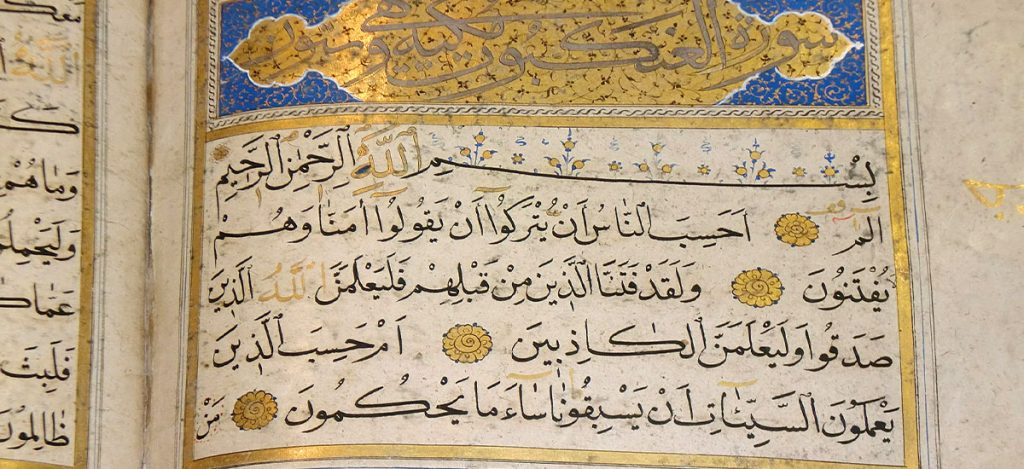 سورة العنكبوت مكية وهي
بِسْمِ اللَّهِ الرَّحْمٰنِ الرَّحِيمِ
الم اَحَسِبَ النَّاسُ اَنْ يُتْرَكُوا اَنْ يَقُولُوا اٰمَنَّا وَهُمْ
يُفْتَنُونَ وَلَقَدْ فَتَنَّا الَّذِينَ مِنْ قَبْلِهِمْ فَلَيَعْلَمَنَّ اللَّهُ الَّذِينَ
صَدَقُوا وَلَيَعْلَمَنَّ الْكَاذِبِينَ اَمْ حَسِبَ الَّذِينَ
يَعْمَلُونَ السَّيِّـَٔاتِ اَنْ يَسْبِقُونَا سَاءَ مَا يَحْكُمُونَ مَنْ
اللَّهُ
وَمَا هُمْ
عَمَّا كَا
فَلَبِثَ
ظَالِمُونَ